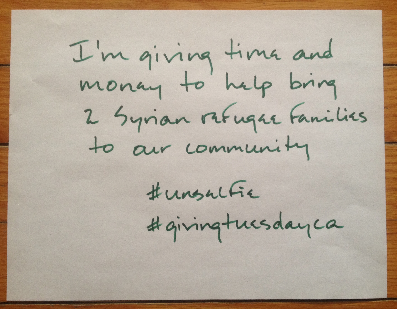 I'm giving time and
money to help bring
2 Syrian refugee families
to our community
#unselfie
#givingtuesdayca